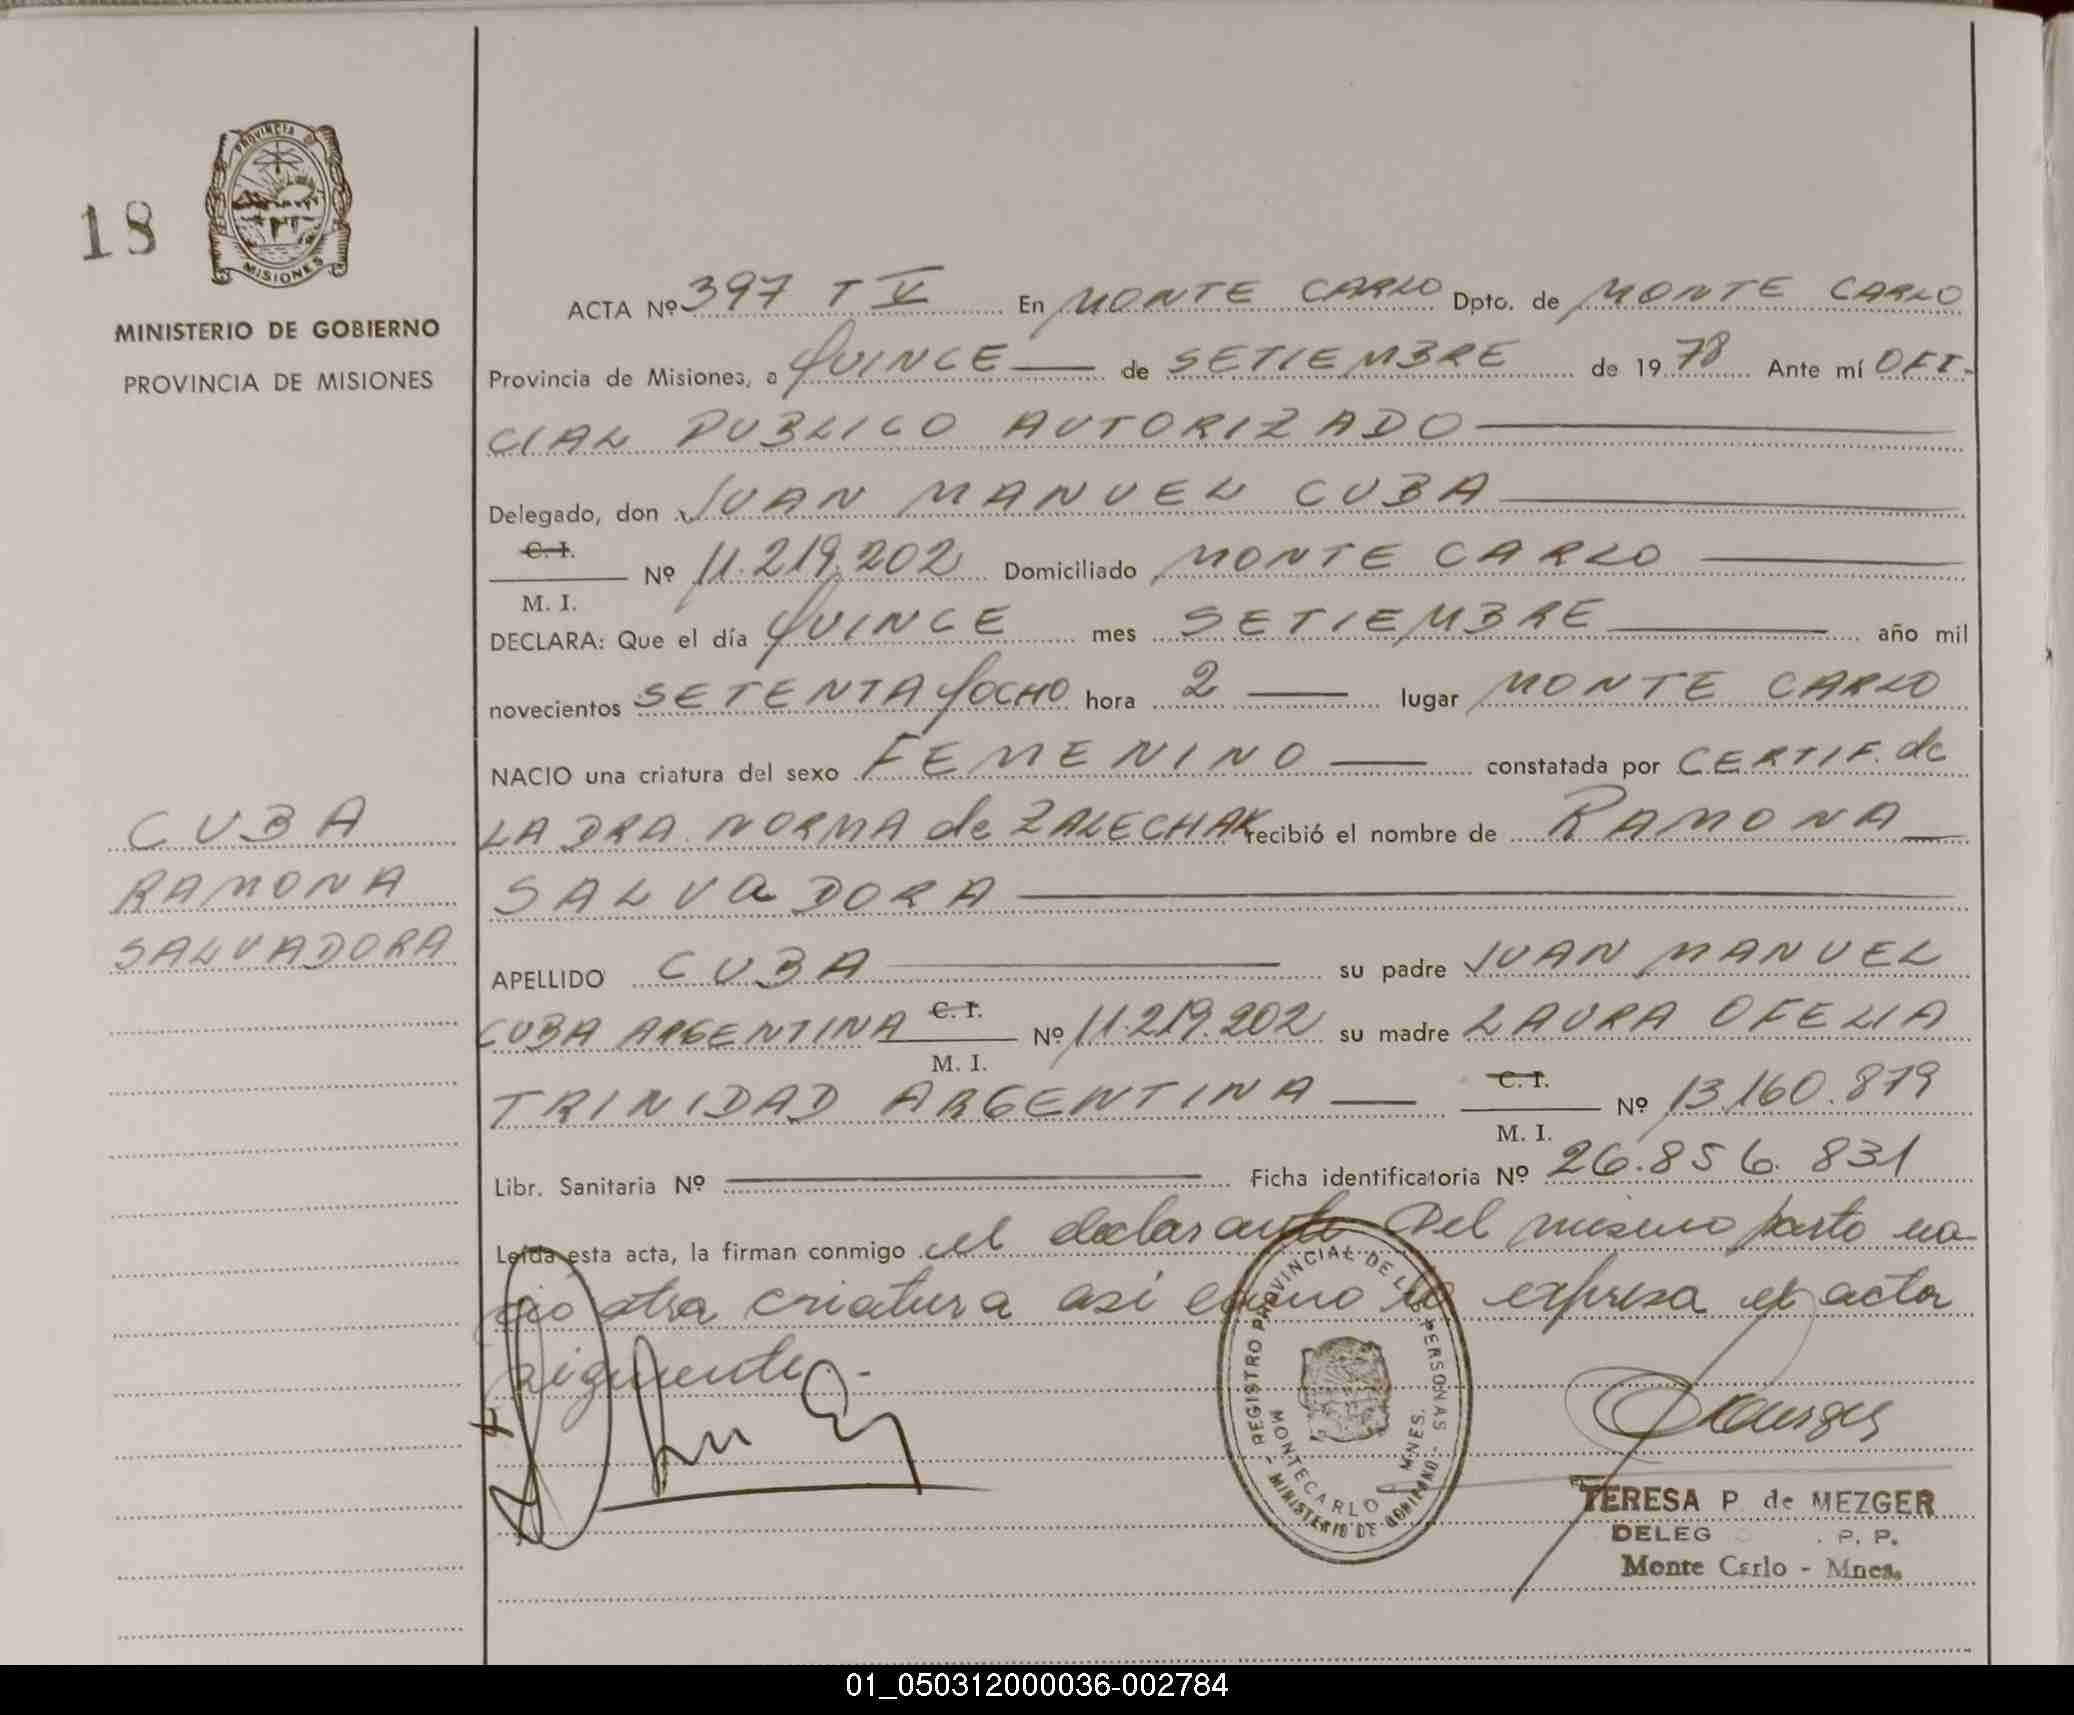 18
PROVINCIA DE
MISIONES
MINISTERIO DE GOBIERNO
PROVINCIA DE MISIONES
CUBA
RAMONA
SALVADORA
ACTA Nº 397 T V En MONTE CARLO Dpto. de MONTE CARLO
Provincia de Misiones, a QUINCE — de SETIEMBRE de 1978 Ante mí OFI-
CIAL PUBLICO AUTORIZADO —
Delegado, don JUAN MANUEL CUBA —
C. I.
Nº 11.219.202 Domiciliado MONTE CARLO —
M. I.
DECLARA: Que el día QUINCE mes SETIEMBRE — año mil
novecientos SETENTA y OCHO hora 2 — lugar MONTE CARLO
NACIO una criatura del sexo FEMENINO — constatada por CERTIF. de
LA DRA. NORMA de ZALECHAK recibió el nombre de RAMONA —
SALVaDORA —
APELLIDO CUBA — su padre JUAN MANUEL
CUBA ARGENTINA C. I. Nº 11.219.202 su madre LAURA OFELIA
M. I.
TRINIDAD ARGENTINA — C. I. Nº 13.160.879
M. I.
Libr. Sanitaria Nº — Ficha identificatoria Nº 26.856.831
Leída esta acta, la firman conmigo el declarante Del mismo parto na-
ció otra criatura así como lo expresa el acta
siguiente.-
REGISTRO PROVINCIAL DE LAS PERSONAS - MINISTERIO DE GOBIERNO -
MONTECARLO MNES.
TERESA P. de MEZGER
DELEG . P. P.
Monte Carlo - Mnes.
01_050312000036-002784